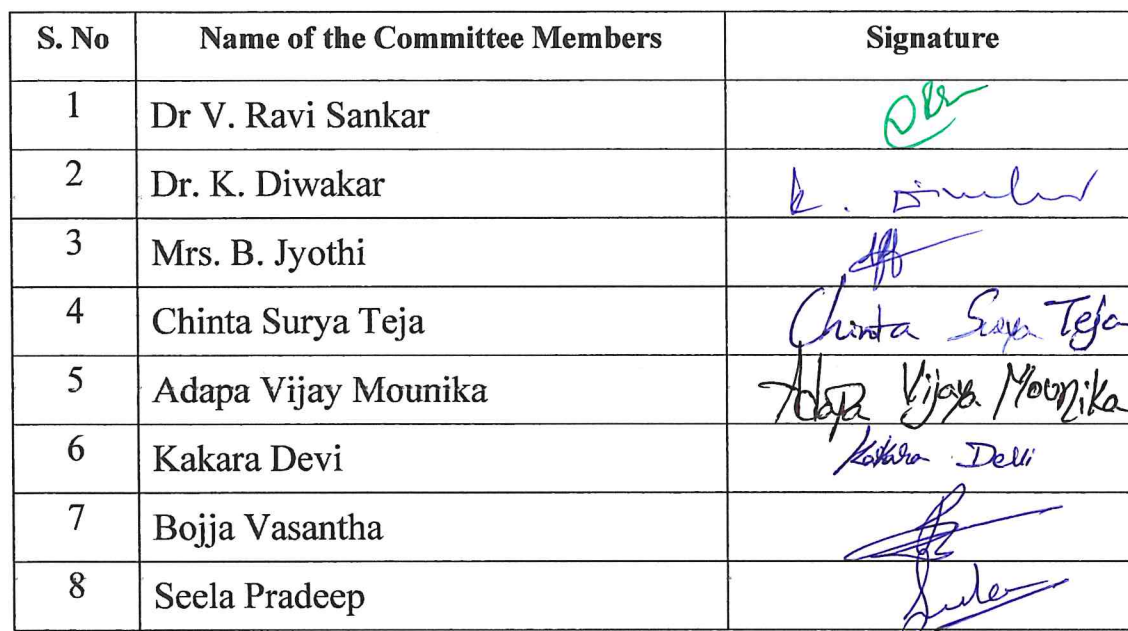 S. No Name of the Committee Members Signature
1 Dr V. Ravi Sankar
2 Dr. K. Diwakar K. Diwakar
3 Mrs. B. Jyothi
4 Chinta Surya Teja Chinta Surya Teja
5 Adapa Vijay Mounika Adapa Vijaya Mounika
6 Kakara Devi Kakara Devi
7 Bojja Vasantha
8 Seela Pradeep